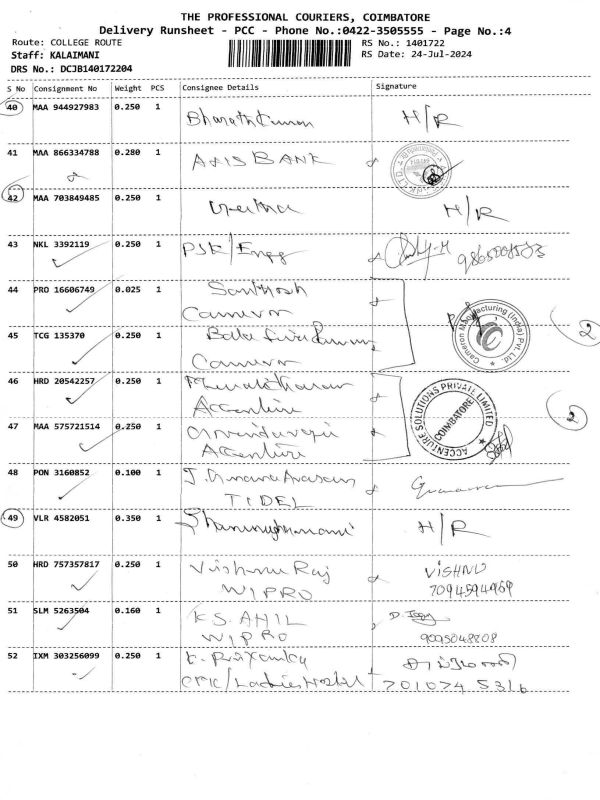 THE PROFESSIONAL COURIERS, COIMBATORE
Delivery Runsheet - PCC - Phone No.:0422-3505555 - Page No.:4
Route: COLLEGE ROUTE
RS No.: 1401722
Staff: KALAIMANI
RS Date: 24-Jul-2024
DRS No.: DCJB140172204
S No Consignment No Weight PCS Consignee Details Signature
40 MAA 944927983 0.250 1 Bharathkumar H/R
41 MAA 866334788 0.280 1 AXIS BANK
42 MAA 703849485 0.250 1 H/R
43 NKL 3392119 0.250 1 PSK/Engg
44 PRO 16606749 0.025 1 Santhosh
Cameron
Cameron Manufacturing (India) Pvt. Ltd.
2
45 TCG 135370 0.250 1 Bala
Cameron
46 HRD 20542257 0.250 1
Accenture
ACCENTURE SOLUTIONS PRIVATE LIMITED
COIMBATORE
2
47 MAA 575721514 0.250 1
Accenture
48 PON 3160852 0.100 1
TIDEL
49 VLR 4582051 0.350 1 H/R
50 HRD 757357817 0.250 1 Vishnu Raj VISHNU
WIPRO 7094594969
51 SLM 5263504 0.160 1 K.S. AHIL
WIPRO 9095048808
52 IXM 303256099 0.250 1
Ladies Hostel 701074 5316